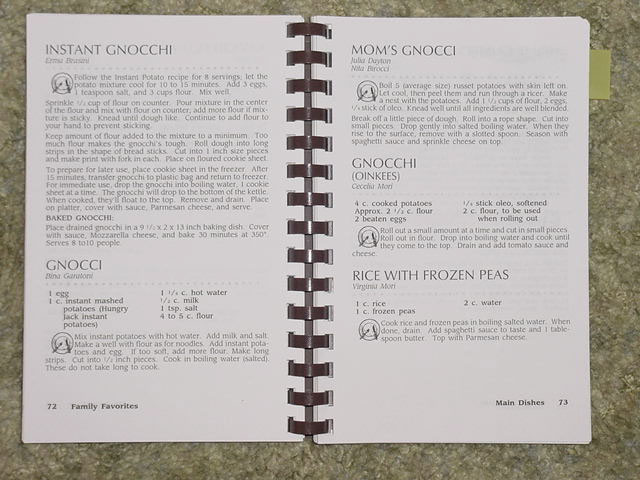 INSTANT GNOCCHI
Erma Beasini
Follow the Instant Potato recipe for 8 servings; let the
potato mixture cool for 10 to 15 minutes. Add 3 eggs,
1 teaspoon salt, and 3 cups flour. Mix well.
Sprinkle 1/2 cup of flour on counter. Pour mixture in the center
of the flour and mix with flour on counter; add more flour if mix-
ture is sticky. Knead until dough like. Continue to add flour to
your hand to prevent sticking.
Keep amount of flour added to the mixture to a minimum. Too
much flour makes the gnocchi's tough. Roll dough into long
strips in the shape of bread sticks. Cut into 1 inch size pieces
and make print with fork in each. Place on floured cookie sheet.
To prepare for later use, place cookie sheet in the freezer. After
15 minutes, transfer gnocchi to plastic bag and return to freezer.
For immediate use, drop the gnocchi into boiling water, 1 cookie
sheet at a time. The gnocchi will drop to the bottom of the kettle.
When cooked, they'll float to the top. Remove and drain. Place
on platter, cover with sauce, Parmesan cheese, and serve.
BAKED GNOCCHI:
Place drained gnocchi in a 9 1/2 x 2 x 13 inch baking dish. Cover
with sauce, Mozzarella cheese, and bake 30 minutes at 350°.
Serves 8 to10 people.
GNOCCI
Bina Garatoni
1 egg
1 c. instant mashed
potatoes (Hungry
Jack instant
potatoes)
1 1/4 c. hot water
1/2 c. milk
1 tsp. salt
4 to 5 c. flour
Mix instant potatoes with hot water. Add milk and salt.
Make a well with flour as for noodles. Add instant pota-
toes and egg. If too soft, add more flour. Make long
strips. Cut into 1/2 inch pieces. Cook in boiling water (salted).
These do not take long to cook.
72 Family Favorites
MOM'S GNOCCI
Julia Dayton
Nita Birocci
Boil 5 (average size) russet potatoes with skin left on.
Let cool, then peel them and run through a ricer. Make
a nest with the potatoes. Add 1 1/2 cups of flour, 2 eggs,
1/4 stick of oleo. Knead well until all ingredients are well blended.
Break off a little piece of dough. Roll into a rope shape. Cut into
small pieces. Drop gently into salted boiling water. When they
rise to the surface, remove with a slotted spoon. Season with
spaghetti sauce and sprinkle cheese on top.
GNOCCHI
(OINKEES)
Cecelia Mori
4 c. cooked potatoes
Approx. 2 1/2 c. flour
2 beaten eggs
stick oleo, softened
2 c. flour, to be used
when rolling out
Roll out a small amount at a time and cut in small pieces.
Roll out in flour. Drop into boiling water and cook until
they come to the top. Drain and add tomato sauce and
cheese.
RICE WITH FROZEN PEAS
Virginia Mori
1 c. rice
1 c. frozen peas
2 c. water
Cook rice and frozen peas in boiling salted water. When
done, drain. Add spaghetti sauce to taste and 1 table-
spoon butter. Top with Parmesan cheese.
Main Dishes 73